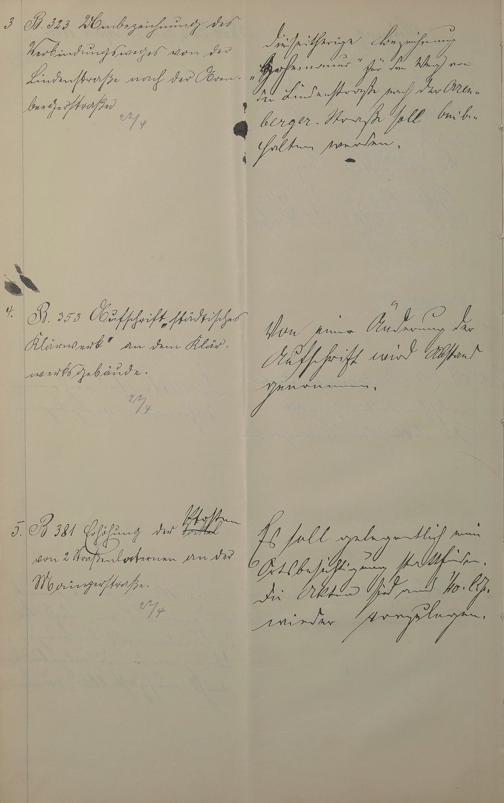 3 B. 323 Umbezeichnung des
Verbindungsweges von der
Lindenstraße nach der Aren-
bergerstraße
22/4
Die seitherige Bezeichnung
für den Weg von
der Lindenstraße nach der Aren-
berger-Straße soll beibe-
halten werden.
4. B. 353 Aufschrift "städtisches
Klärwerk" an dem Klär-
werksgebäude.
22/4
Von einer Änderung der
Aufschrift wird Abstand
genommen.
5. B 381 Erhöhung der Kosten
von 2 Straßenlaternen an der
Mainzerstraße.
22/4
Es soll gelegentlich eine
Ortsbesichtigung stattfinden.
Die Akten sind
wieder vorzulegen.